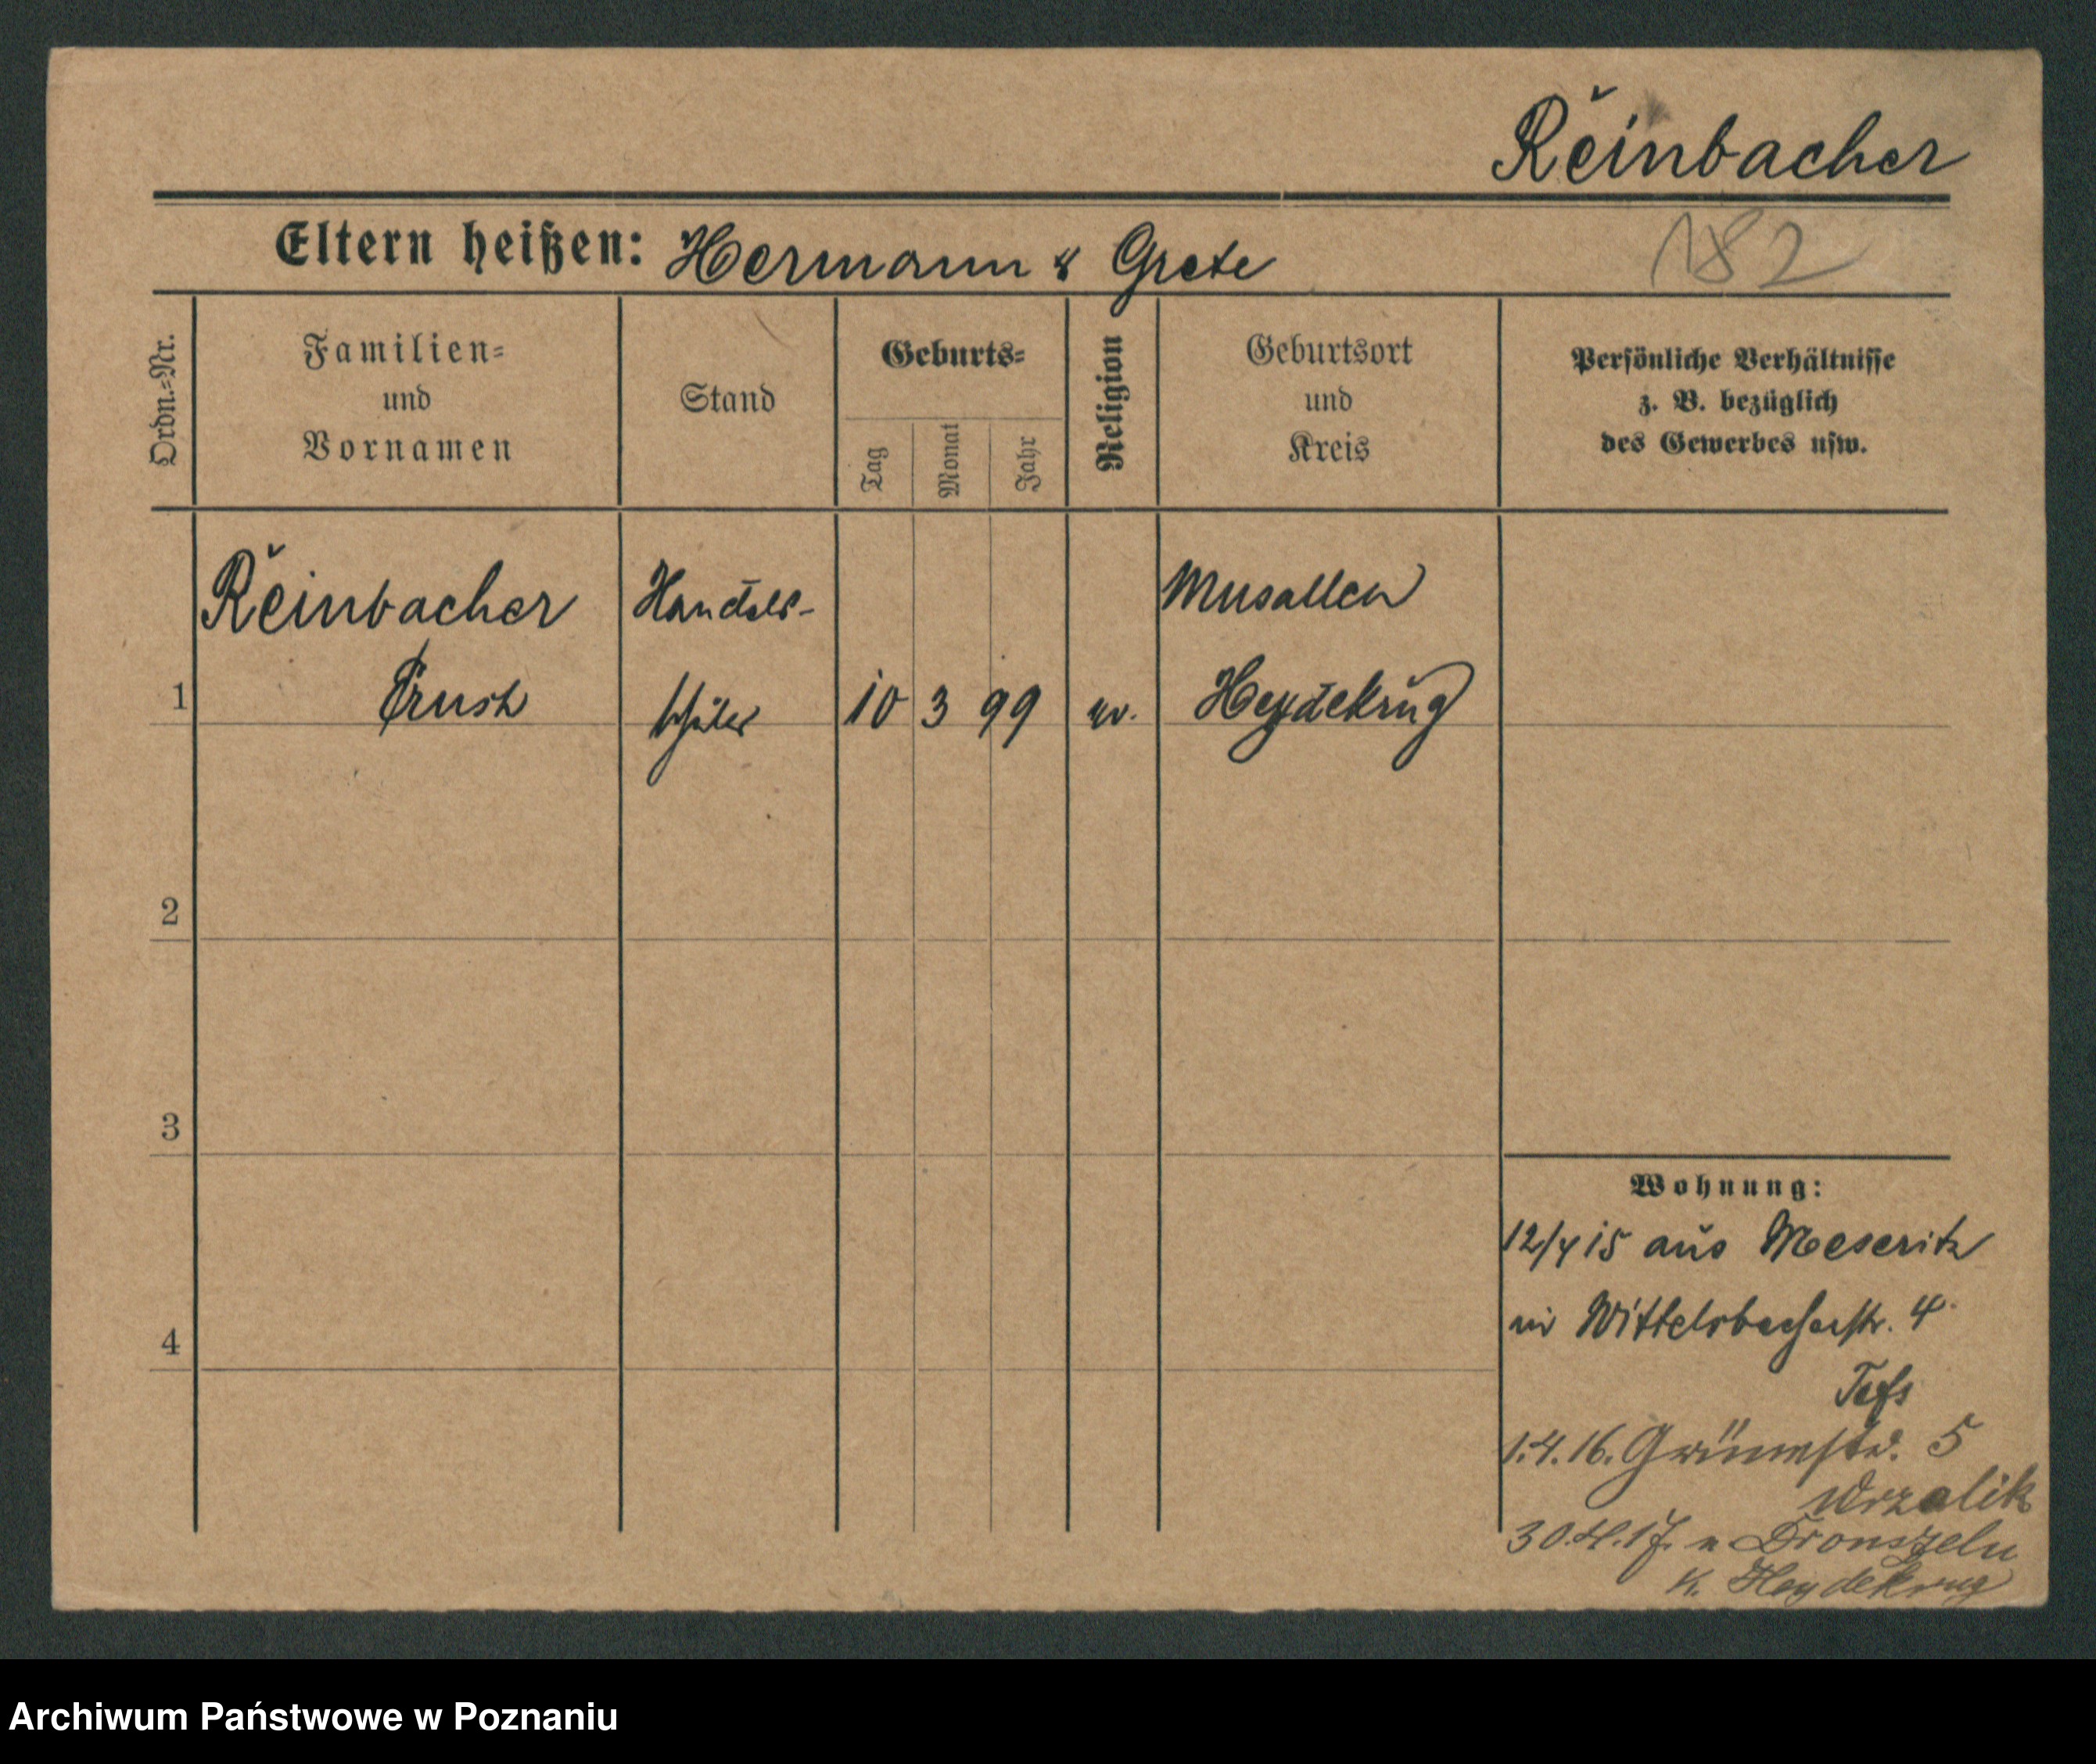 Reinbacher
Eltern heißen: Hermann & Grete
182
Ordn.-Nr.
Familien-
und
Vornamen
Stand
Geburts-
Tag
Monat
Jahr
Religion
Geburtsort
und
Kreis
Persönliche Verhältnisse
z. B. bezüglich
des Gewerbes usw.
1
Reinbacher
Ernst
Handels-
schüler
10 3 99
ev.
Musallen
Heydekrug
2
3
4
Wohnung:
12/4 15 aus Meseritz
Wittelsbacherstr. 4
1.4.16. 5
Wrzalik
30.4.17. n Dronszeln
K. Heydekrug
Archiwum Państwowe w Poznaniu